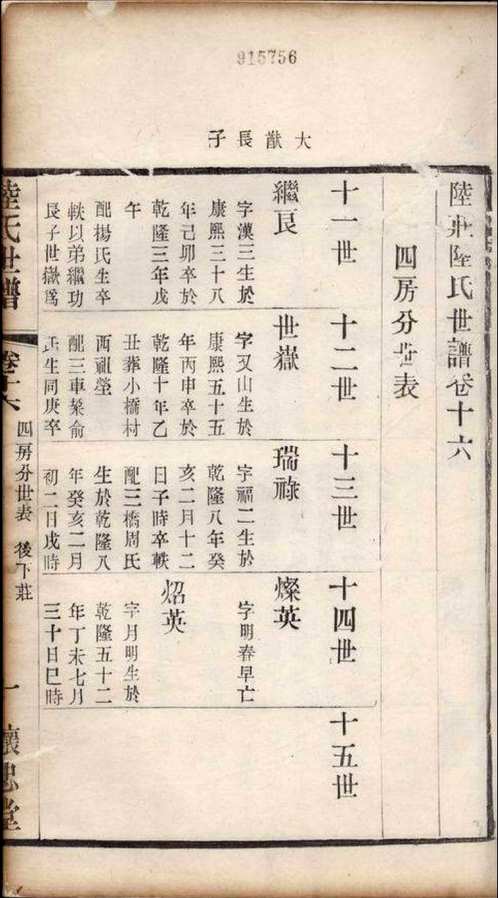 915756
大猷長子
陸莊陸氏世譜卷十六
四房分世表
十一世
十二世
十三世
十四世
十五世
繼良
字漢三生於
康熙三十八
年己卯卒於
乾隆三年戊
午
配楊氏生卒
軼以弟繼功
長子世嶽爲
世嶽
字又山生於
康熙五十五
年丙申卒於
乾隆十年乙
丑葬小橋村
西祖塋
配三車渠俞
氏生同庚卒
瑞祿
字福二生於
乾隆八年癸
亥二月十二
日子時卒軼
配三橋周氏
生於乾隆八
年癸亥二月
初二日戌時
燦英
字明春早亡
炤英
字月明生於
乾隆五十二
年丁未七月
三十日巳時
陸氏世譜
卷十六
四房分世表
後下莊
一
懷忠堂